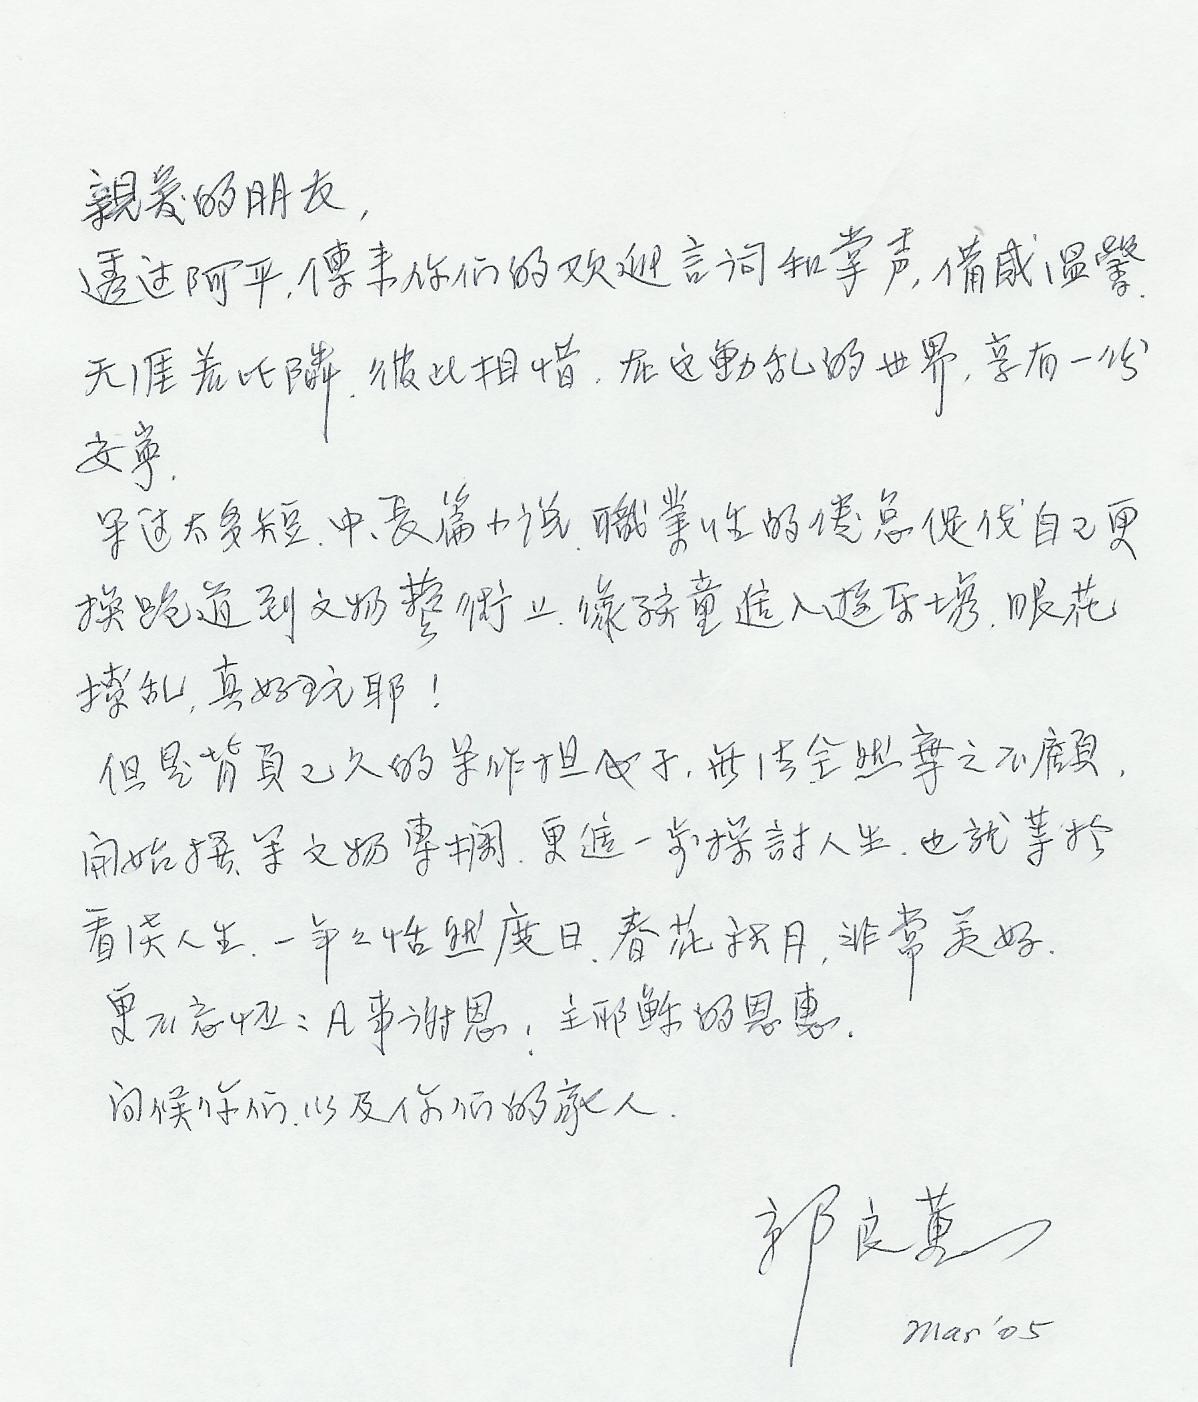 親爱的朋友，
透过阿平，傳来你们的欢迎言词和掌声，備感温馨.
天涯若比隣，彼此相惜，在这動乱的世界，享有一份
安寧.
写过太多短、中、長篇小说，職業性的倦怠促使自己更
換跑道到文物藝術上，像孩童進入遊乐場，眼花
撩乱，真好玩耶！
但是背負已久的写作担子，無法全然棄之不顧，
開始撰写文物專欄，更進一步探討人生，也就等於
看淡人生，一年年恬然度日，春花秋月，非常美好.
更不忘怀：凡事谢恩，主耶穌的恩惠.
问候你们，以及你们的家人.
郭良蕙
Mar '05